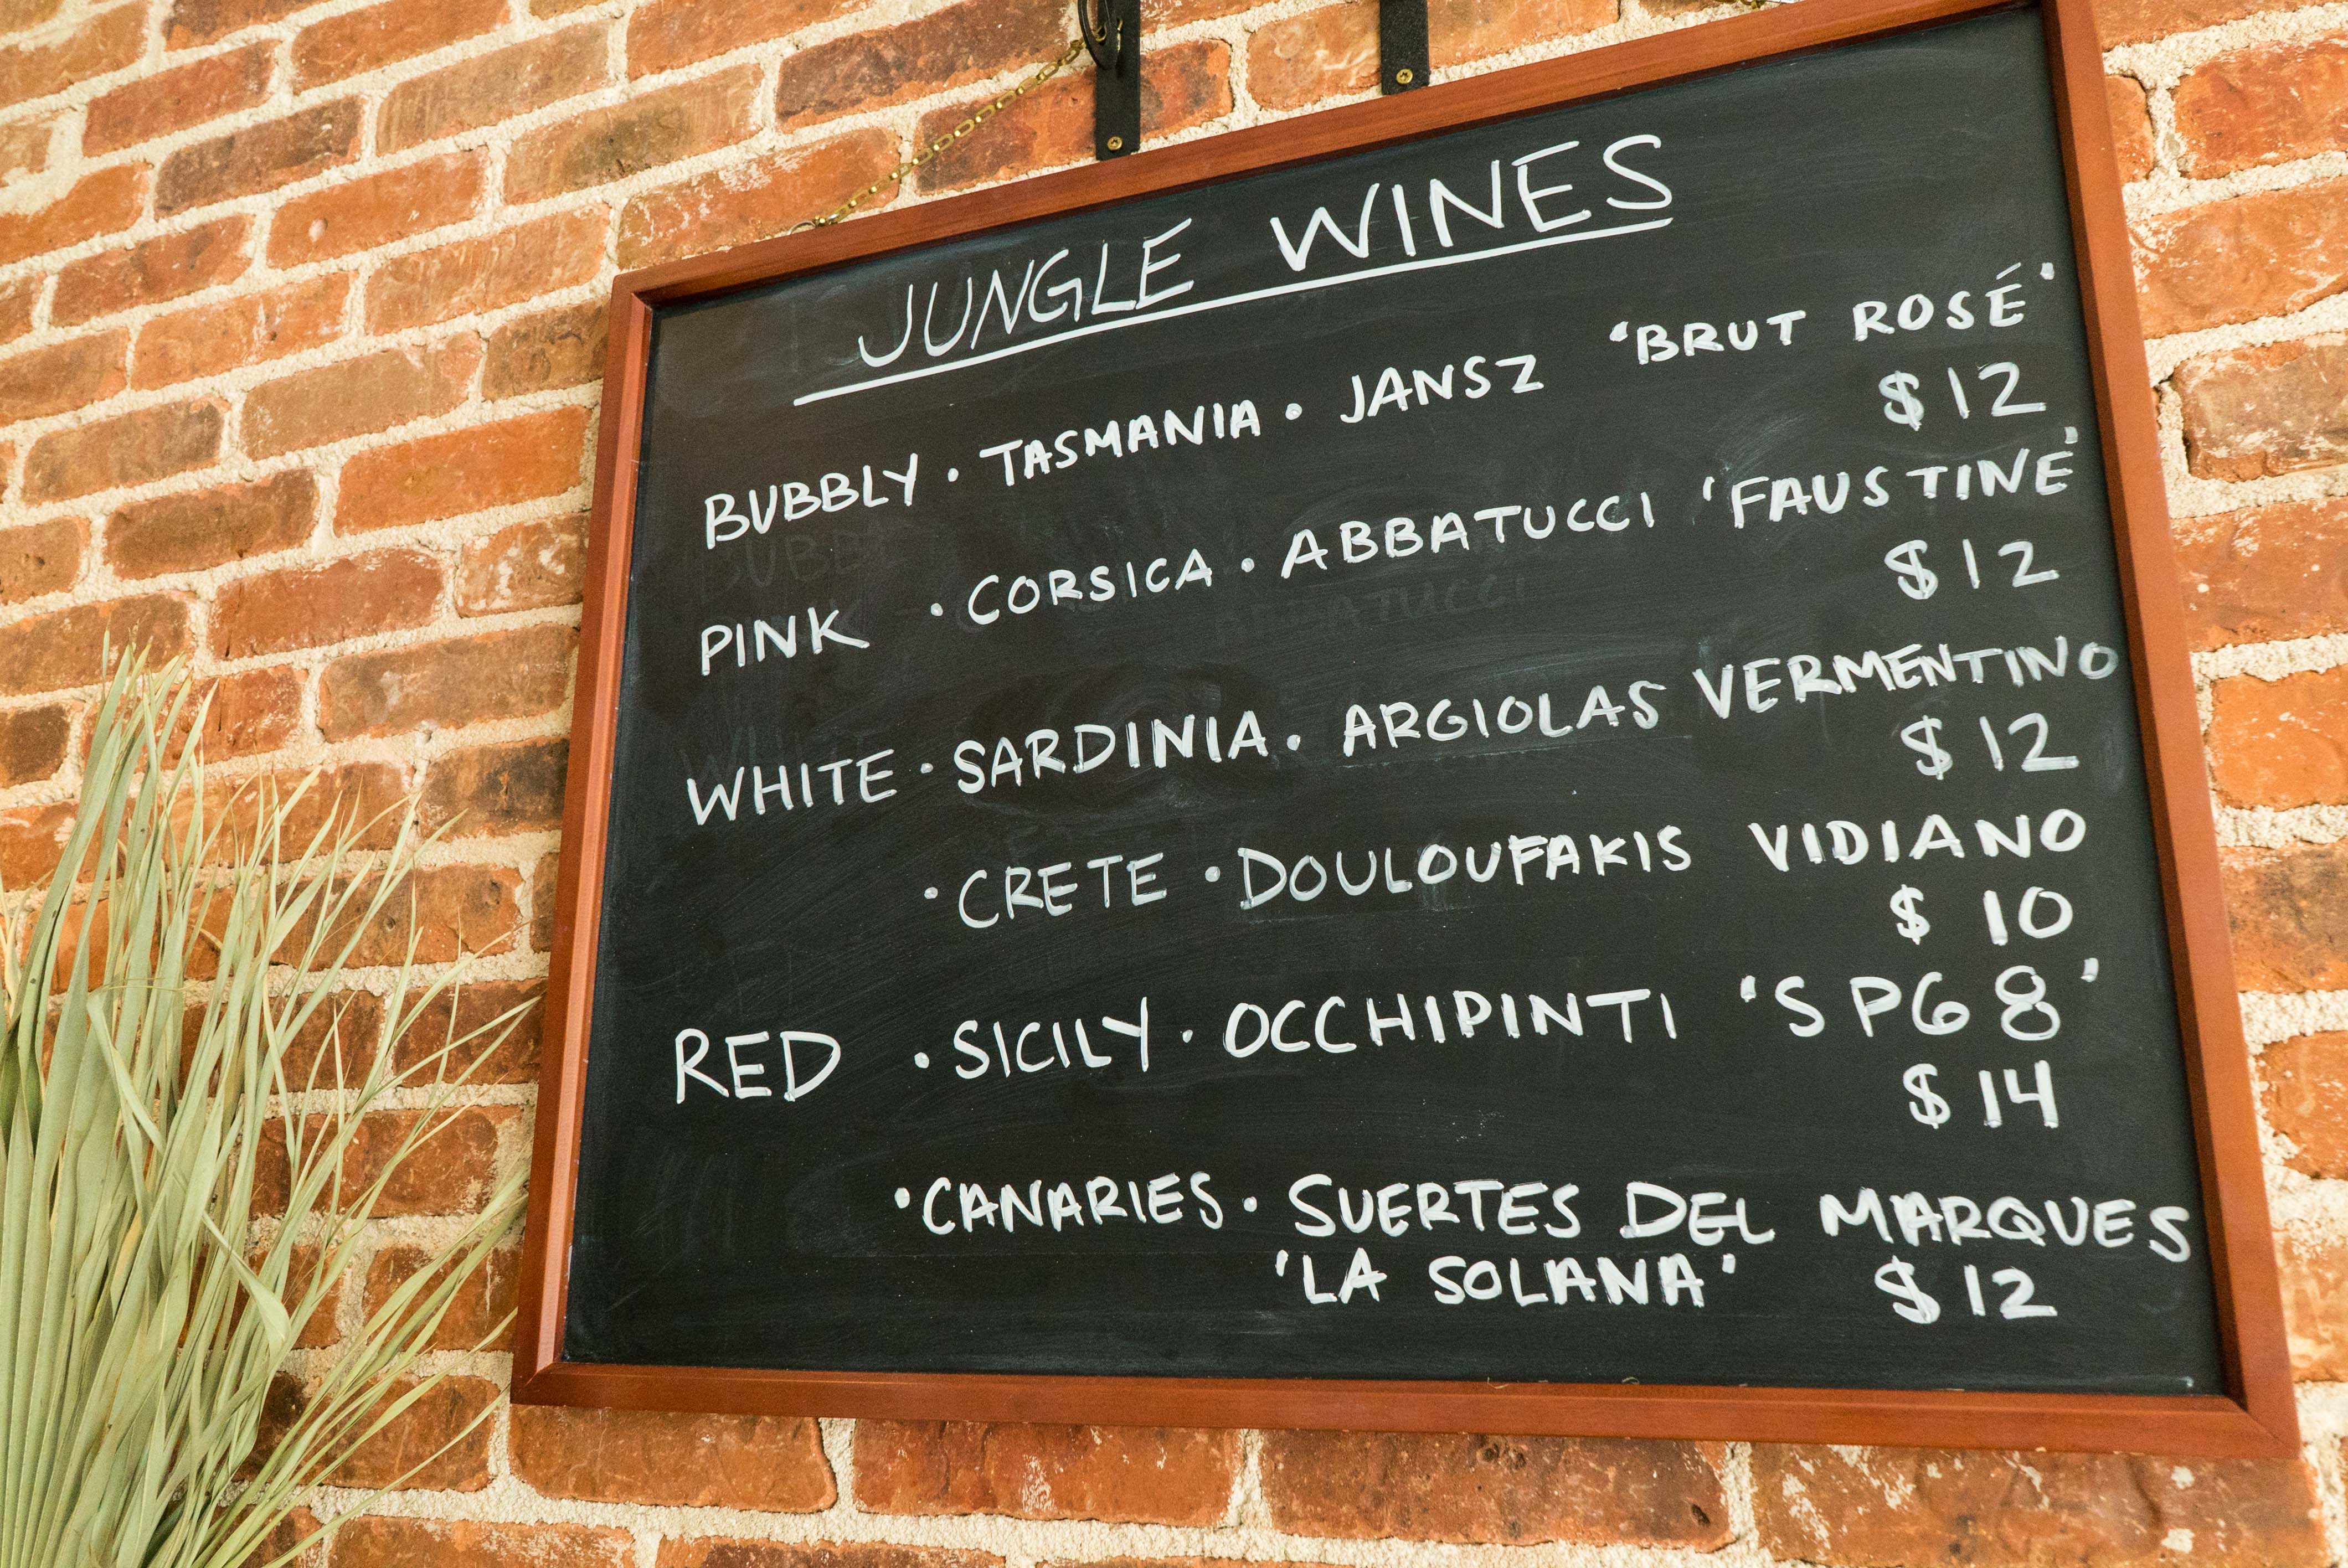 JUNGLE WINES
BUBBLY · TASMANIA · JANSZ 'BRUT ROSÉ'
$12
PINK · CORSICA · ABBATUCCI 'FAUSTINE'
$12
WHITE · SARDINIA · ARGIOLAS VERMENTINO
$12
· CRETE · DOULOUFAKIS VIDIANO
$10
RED · SICILY · OCCHIPINTI 'SP68'
$14
· CANARIES · SUERTES DEL MARQUES
'LA SOLANA' $12